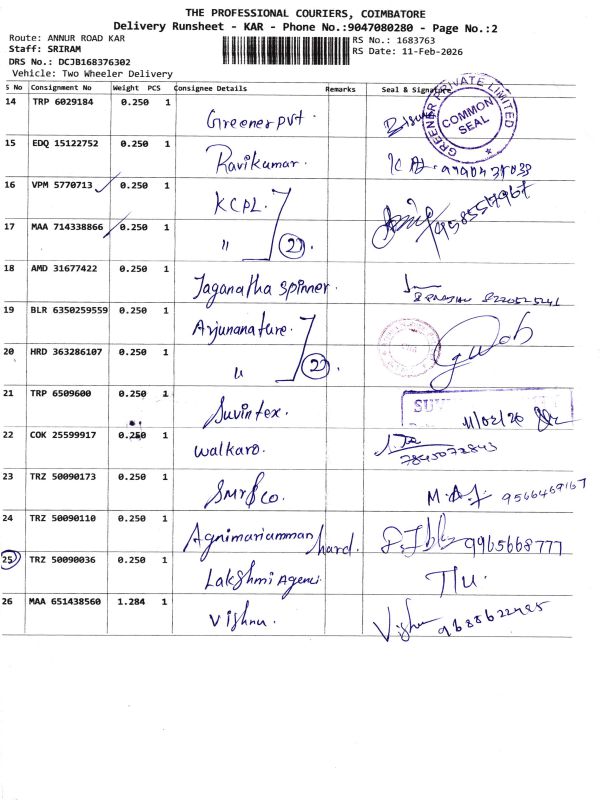 THE PROFESSIONAL COURIERS, COIMBATORE
Delivery Runsheet - KAR - Phone No.:9047080280 - Page No.:2
Route: ANNUR ROAD KAR
RS No.: 1683763
Staff: SRIRAM
RS Date: 11-Feb-2026
DRS No.: DCJB168376302
Vehicle: Two Wheeler Delivery
S No Consignment No Weight PCS Consignee Details Remarks Seal & Signature
14 TRP 6029184 0.250 1 Greener pvt.
GREENER PRIVATE LIMITED
COMMON SEAL
15 EDQ 15122752 0.250 1 Ravikumar.
16 VPM 5770713 0.250 1 KCPL.
17 MAA 714338866 0.250 1 " (2).
18 AMD 31677422 0.250 1 Jaganatha spinner.
19 BLR 6350259559 0.250 1 Arjunanature.
20 HRD 363286107 0.250 1 " (2).
21 TRP 6509600 0.250 1 Suvintex. SUV 11/02/26
22 COK 25599917 0.250 1 walkaro. 7845072843
23 TRZ 50090173 0.250 1 SMR & co.
24 TRZ 50090110 0.250 1 Agnimariamman hard. 9965668777
25 TRZ 50090036 0.250 1 Lakshmi Agenci
26 MAA 651438560 1.284 1 Vishnu. Vishnu